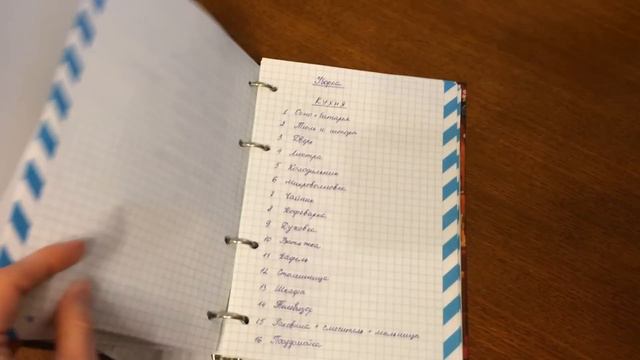 Уборка
КУХНЯ
1 Окно + батарея
2 Тюль и шторы
3 Дверь
4 Люстра
5 Холодильник
6 Микроволновка
7 Чайник
8 Кофеварка
9 Духовка
10 Вытяжка
11 Кафель
12 Столешница
13 Шкафы
14 Телевизор
15 Раковина + смеситель + мыльница
16 Посудомойка